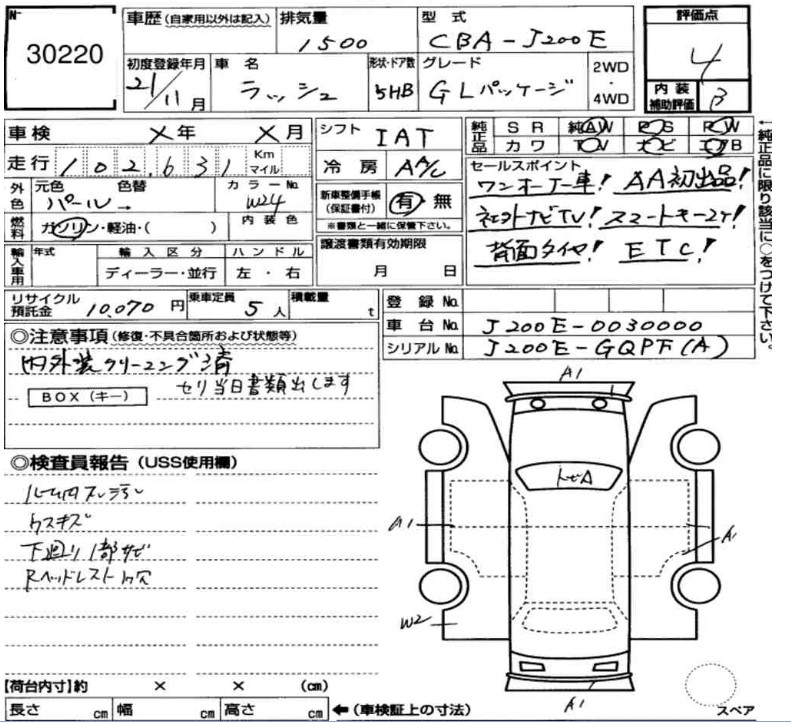 No.
30220
車歴 (自家用以外は記入)
排気量
1500
型式
CBA-J200E
評価点
4
初度登録年月
21/11月
車名
ラッシュ
形状・ドア数
5HB
グレード
GLパッケージ
2WD・4WD
内装補助評価 B
車検 X年 X月
シフト IAT
純正品 SR 純正AW PS PW
カワ TV ナビ エアB
走行 102,631 Km マイル
冷房 AAC
セールスポイント
ワンオーナー車! AA初出品!
純正品に限り該当に○をつけて下さい。
外色 元色 色替 カラーNo.
パール→ W24
新車整備手帳(保証書付) 有・無
※書類と一緒に保管下さい。
ナビTV! スマートキー
背面タイヤ! ETC!
燃料 ガソリン・軽油・( )
内装色
譲渡書類有効期限
月 日
輸入車用 年式 輸入区分 ハンドル
ディーラー・並行 左・右
リサイクル預託金 10,070円
乗車定員 5人
積載量 t
登録No.
車台No. J200E-0030000
シリアルNo. J200E-GQPF(A)
◎注意事項 (修復・不具合箇所および状態等)
内外装クリーニング済
セリ当日書類出します
BOX (キー)
◎検査員報告 (USS使用欄)
ルーム内スレ汚レ
ウスキズ
下廻り1部サビ
RヘッドレストW穴
A1
トビA
A1
A1
A1
W2
A1
【荷台内寸】約 × × (cm)
長さ cm 幅 cm 高さ cm ←(車検証上の寸法)
スペア